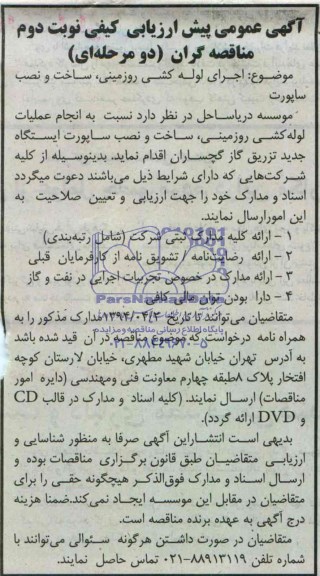 آگهی عمومی پیش ارزیابی کیفی نوبت دوم
مناقصه گران (دو مرحله‌ای)
موضوع: اجرای لوله کشی روزمینی، ساخت و نصب
ساپورت
موسسه دریاساحل در نظر دارد نسبت به انجام عملیات
لوله‌کشی روزمینی، ساخت و نصب ساپورت ایستگاه
جدید تزریق گاز گچساران اقدام نماید. بدینوسیله از کلیه
شرکت‌هایی که دارای شرایط ذیل می‌باشند دعوت میگردد
اسناد و مدارک خود را جهت ارزیابی و تعیین صلاحیت به
این امورارسال نمایند.
۱ - ارائه کلیه مدارک ثبتی شرکت (شامل رتبه‌بندی)
۲ - ارائه رضایت‌نامه / تشویق نامه از کارفرمایان قبلی
۳ - ارائه مدارک در خصوص تجربیات اجرایی در نفت و گاز
۴ - دارا بودن توان مالی کافی
متقاضیان می‌توانند تا تاریخ ۱۳۹۴/۰۴/۲۰ مدارک مذکور را به
همراه نامه درخواست که موضوع مناقصه در آن قید شده باشد
به آدرس تهران خیابان شهید مطهری، خیابان لارستان کوچه
افتخار پلاک ۸طبقه چهارم معاونت فنی ومهندسی (دایره امور
مناقصات) ارسال نمایند. (کلیه اسناد و مدارک در قالب CD
و DVD ارائه گردد).
بدیهی است انتشاراین آگهی صرفا به منظور شناسایی و
ارزیابی متقاضیان طبق قانون برگزاری مناقصات بوده و
ارسال اسناد و مدارک فوق‌الذکر هیچگونه حقی را برای
متقاضیان در مقابل این موسسه ایجاد نمی‌کند.ضمنا هزینه
درج آگهی به عهده برنده مناقصه است.
متقاضیان در صورت داشتن هرگونه سئوالی می‌توانند با
شماره تلفن ۸۸۹۱۳۱۱۹-۰۲۱ تماس حاصل نمایند.
ParsNamadData
پایگاه اطلاع رسانی مناقصه و مزایده